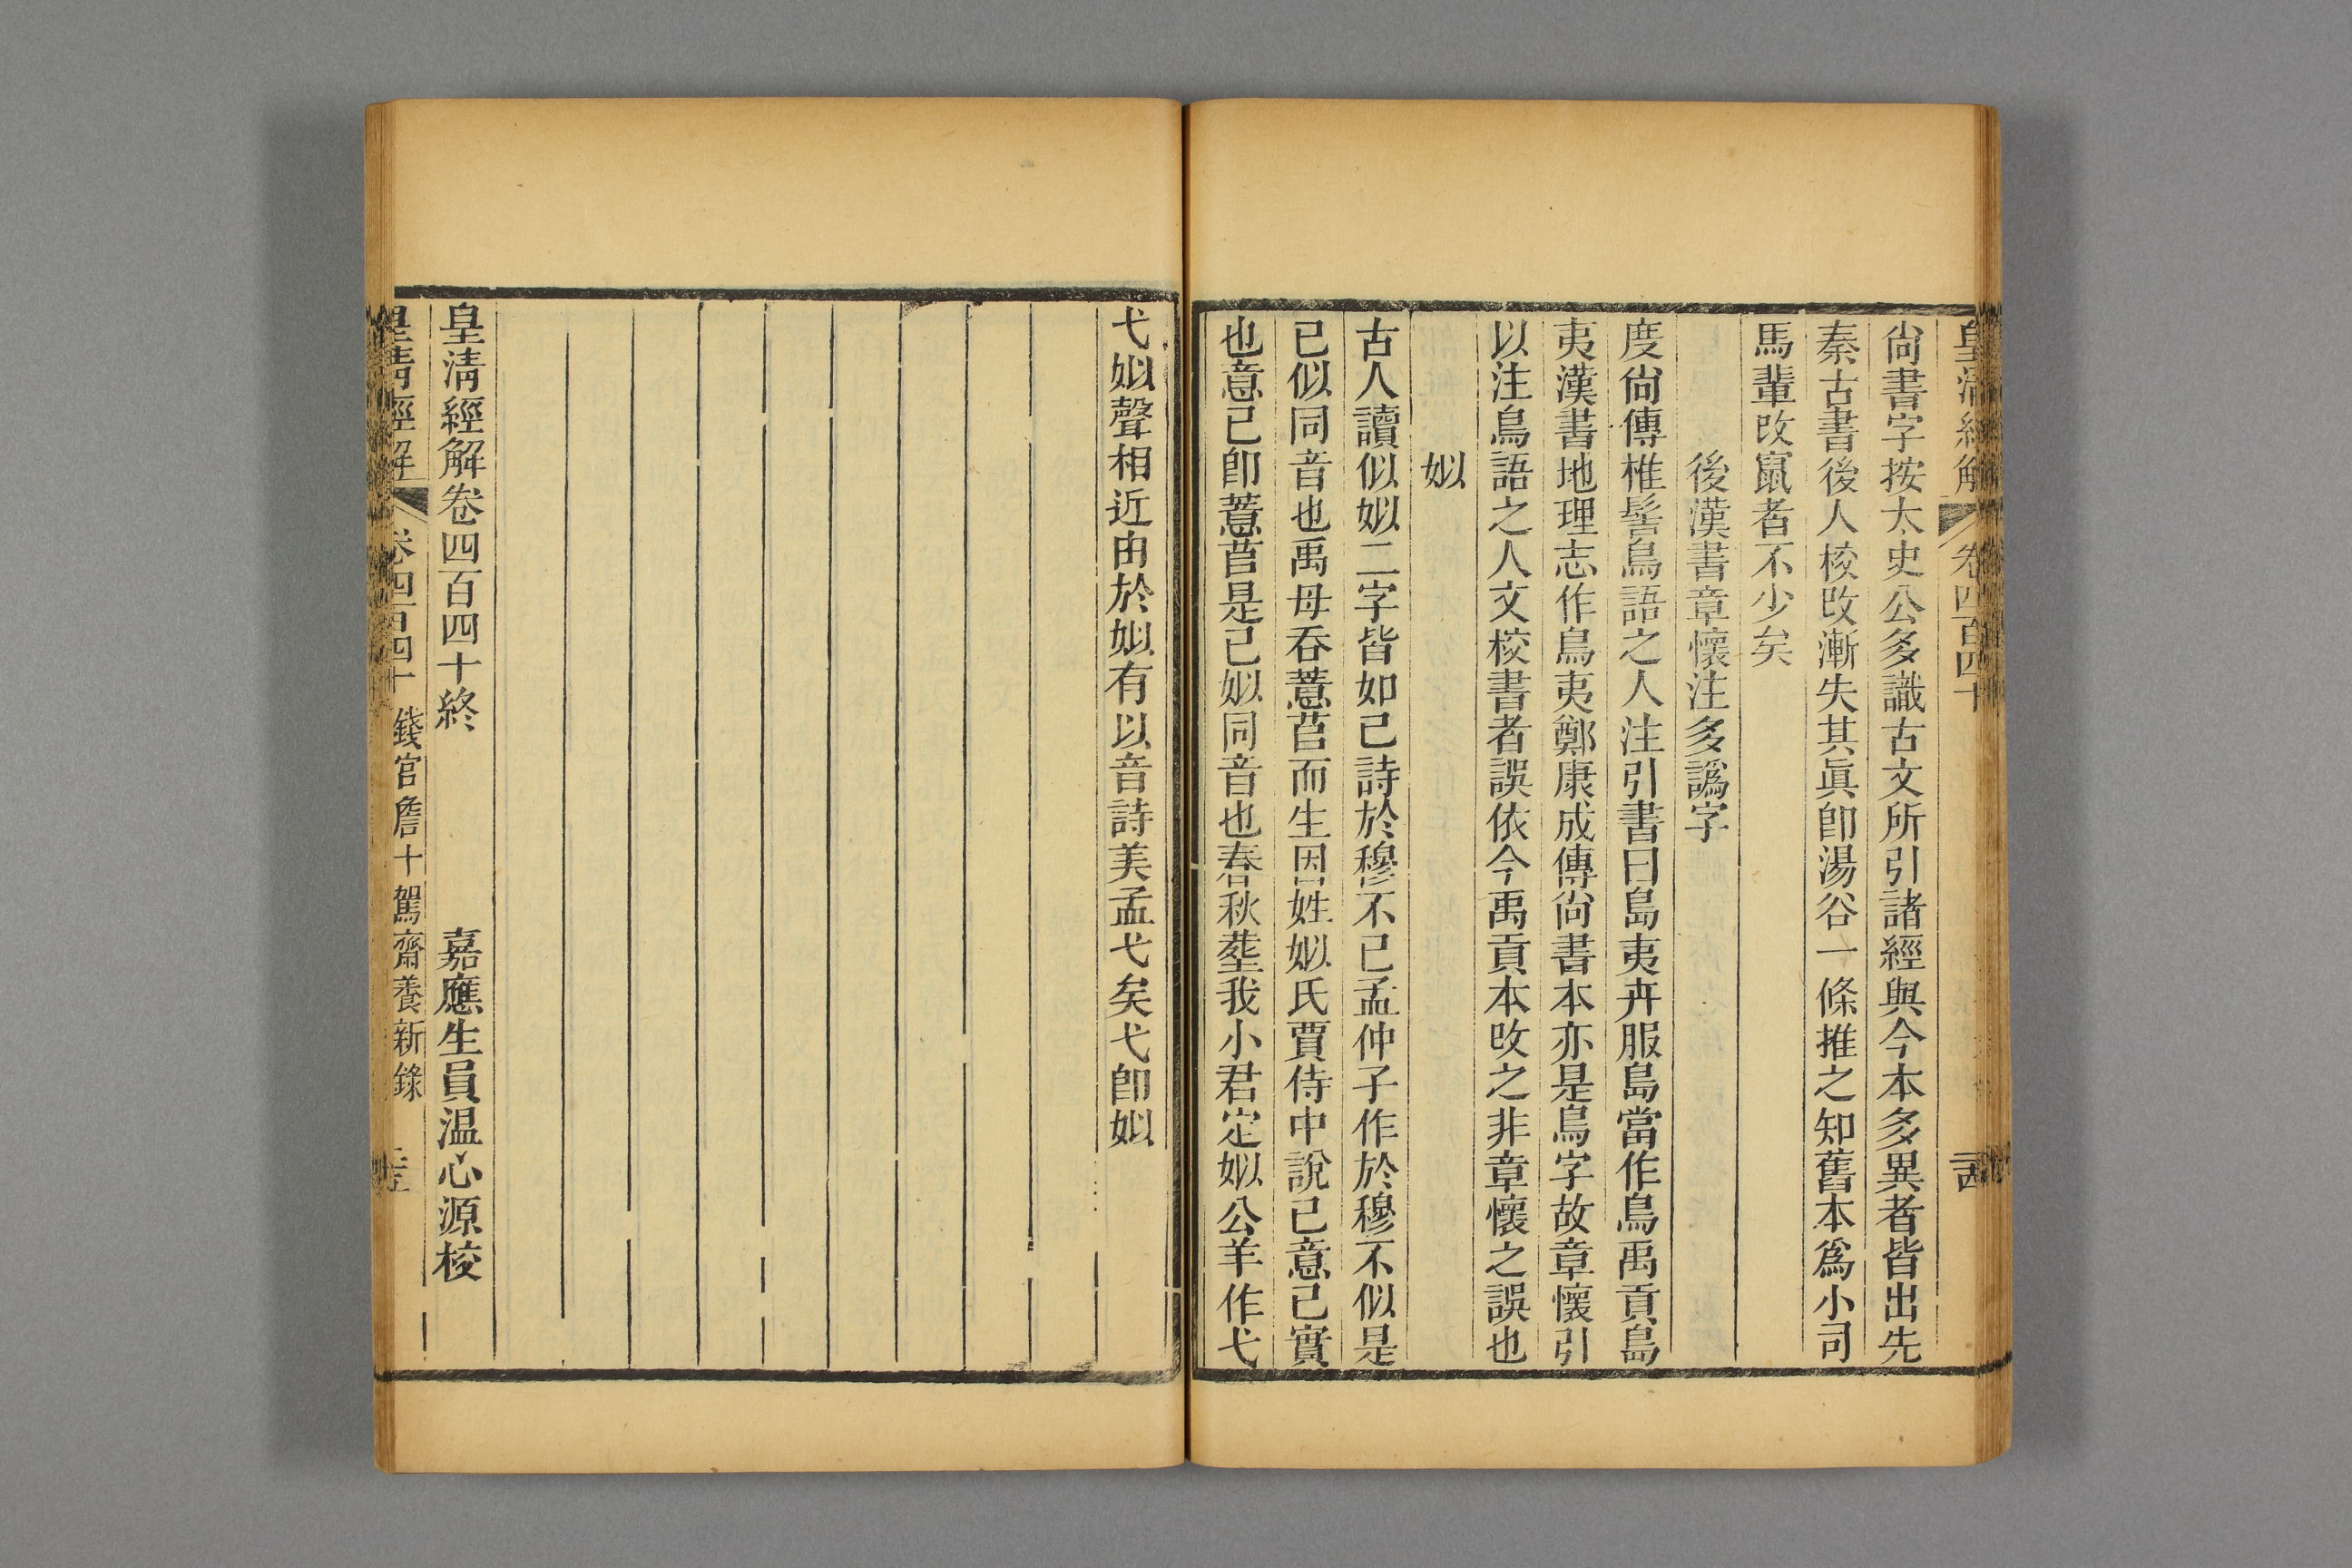 皇清經解 卷四百四十
尚書字按太史公多識古文所引諸經與今本多異者皆出先
秦古書後人校改漸失其眞卽湯谷一條推之知舊本爲小司
馬輩改竄者不少矣
後漢書章懷注多譌字
度尚傳椎髻鳥語之人注引書曰島夷卉服島當作鳥禹貢島
夷漢書地理志作鳥夷鄭康成傳尚書本亦是鳥字故章懷引
以注鳥語之人文校書者誤依今禹貢本改之非章懷之誤也
姒
古人讀似姒二字皆如已詩於穆不已孟仲子作於穆不似是
已似同音也禹母吞薏苢而生因姓姒氏賈侍中說已意已實
也意已卽薏苢是已姒同音也春秋塟我小君定姒公羊作弋
弋姒聲相近由於姒有以音詩美孟弋矣弋卽姒
皇清經解卷四百四十終 嘉應生員温心源校
皇清經解 卷四百四十 錢宮詹十駕齋養新錄